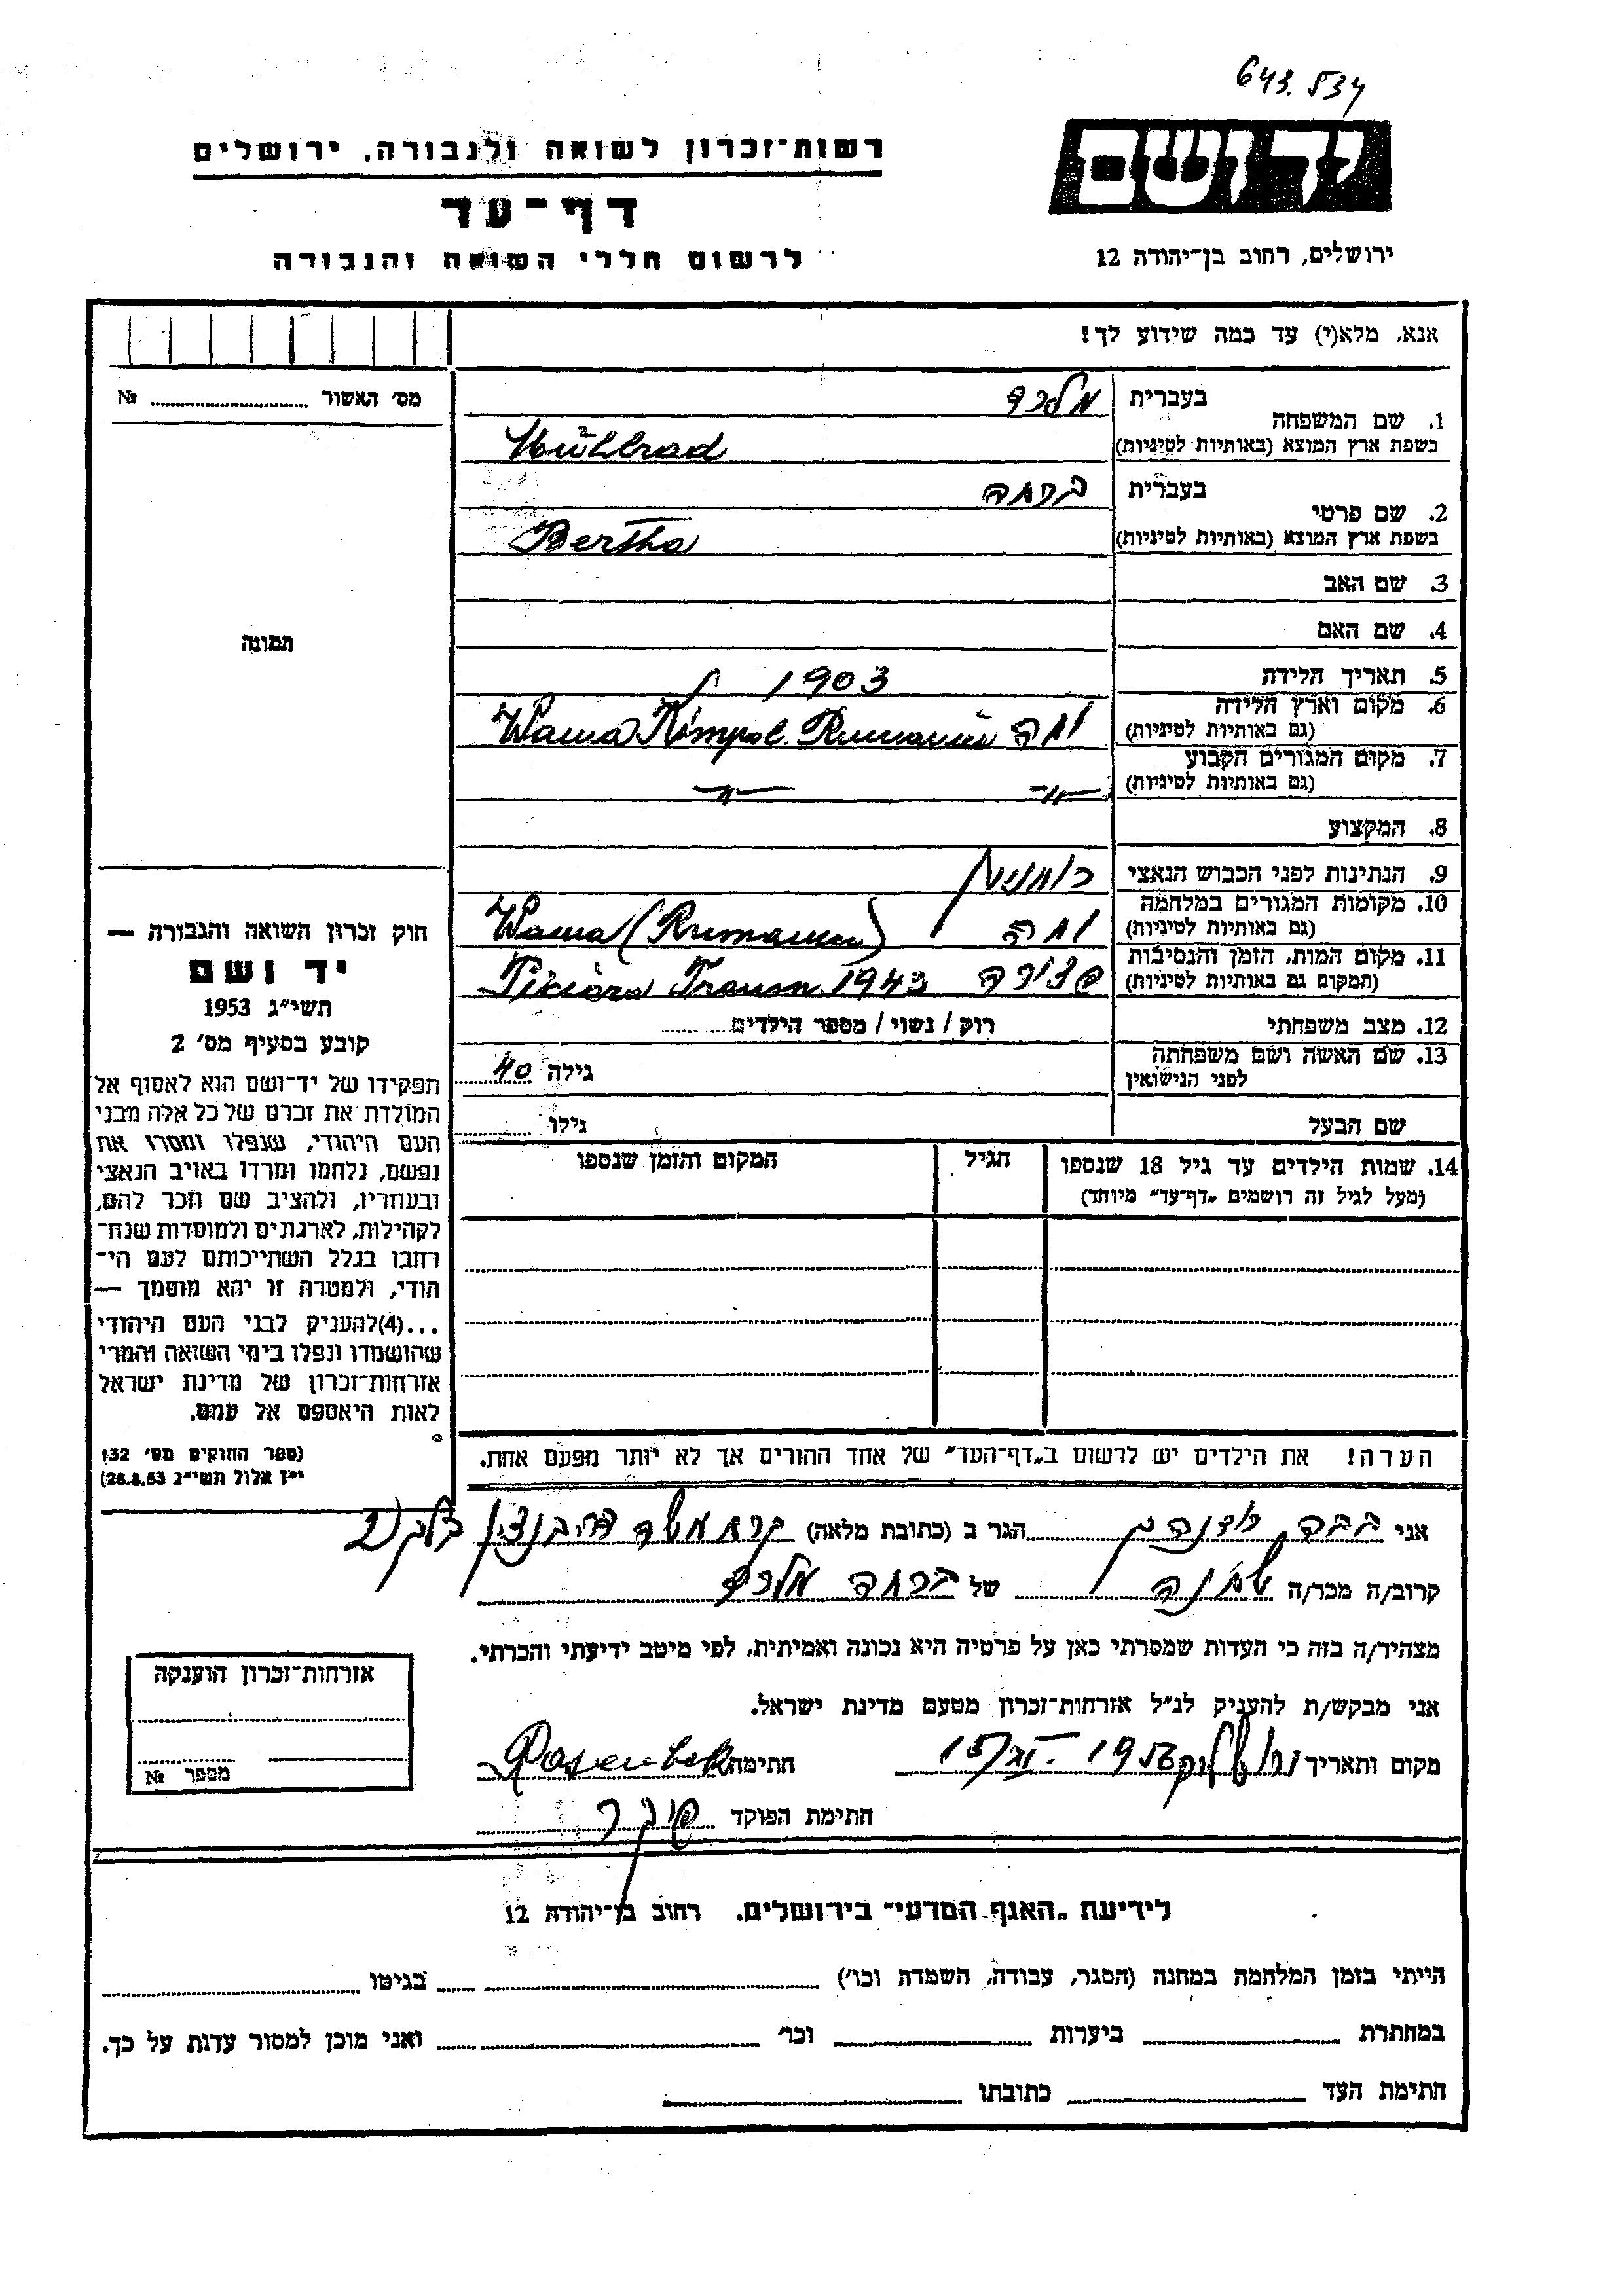 643.534
רשות־זכרון לשואה ולגבורה, ירושלים
יד ושם
דף־עד
לרשום חללי השואה והגבורה
ירושלים, רחוב בן־יהודה 12
אנא, מלא(י) עד כמה שידוע לך!
מס׳ האשור № 
1. שם המשפחה
בעברית מלרד
בשפת ארץ המוצא (באותיות לטיניות) Mühlrad
2. שם פרטי
בעברית ברטה
בשפת ארץ המוצא (באותיות לטיניות) Bertha
3. שם האב
4. שם האם
תמונה
5. תאריך הלידה 1903
6. מקום וארץ הלידה
(גם באותיות לטיניות) Wama Kimpol. Rumanien ומה
7. מקום המגורים הקבוע
(גם באותיות לטיניות) —"— —"—
8. המקצוע
9. הנתינות לפני הכבוש הנאצי
10. מקומות המגורים במלחמה
(גם באותיות לטיניות) ומה Wama (Rumanien)
11. מקום המות, הזמן והנסיבות
(המקום גם באותיות לטיניות) Piciora Transn. 1943
12. מצב משפחתי רוק / נשוי / מספר הילדים
13. שם האשה ושם משפחתה
לפני הנישואין גילה 40
שם הבעל גילו
14. שמות הילדים עד גיל 18 שנספו
(מעל לגיל זה רושמים „דף־עד״ מיוחד)
הגיל
המקום והזמן שנספו
חוק זכרון השואה והגבורה —
יד ושם
תשי״ג 1953
קובע בסעיף מס׳ 2
תפקידו של יד־ושם הוא לאסוף אל
המולדת את זכרם של כל אלה מבני
העם היהודי, שנפלו ומסרו את
נפשם, נלחמו ומרדו באויב הנאצי
ובעוזריו, ולהציב שם וזכר להם,
לקהילות, לארגונים ולמוסדות שנח־
רבו בגלל השתייכותם לעם הי־
הודי, ולמטרה זו יהא מוסמך —
...(4)להעניק לבני העם היהודי
שהושמדו ונפלו בימי השואה והמרי
אזרחות־זכרון של מדינת ישראל
לאות היאספם אל עמם.
(ספר החוקים מס׳ 132
י״ז אלול תשי״ג 28.8.53)
הערה! את הילדים יש לרשום ב„דף־העד״ של אחד ההורים אך לא יותר מפעם אחת.
אני הגר ב (כתובת מלאה)
קרוב/ה מכר/ה שכנה של ברטה מלרד
מצהיר/ה בזה כי העדות שמסרתי כאן על פרטיה היא נכונה ואמיתית, לפי מיטב ידיעתי והכרתי.
אני מבקש/ת להעניק לנ״ל אזרחות־זכרון מטעם מדינת ישראל.
מקום ותאריך חתימה
חתימת הפוקד
אזרחות־זכרון הוענקה
מספר №
לידיעת „האגף המדעי״ בירושלים, רחוב בן־יהודה 12
הייתי בזמן המלחמה במחנה (הסגר, עבודה, השמדה וכו׳) בגיטו
במחתרת ביערות וכו׳ ואני מוכן למסור עדות על כך.
חתימת העד כתובתו